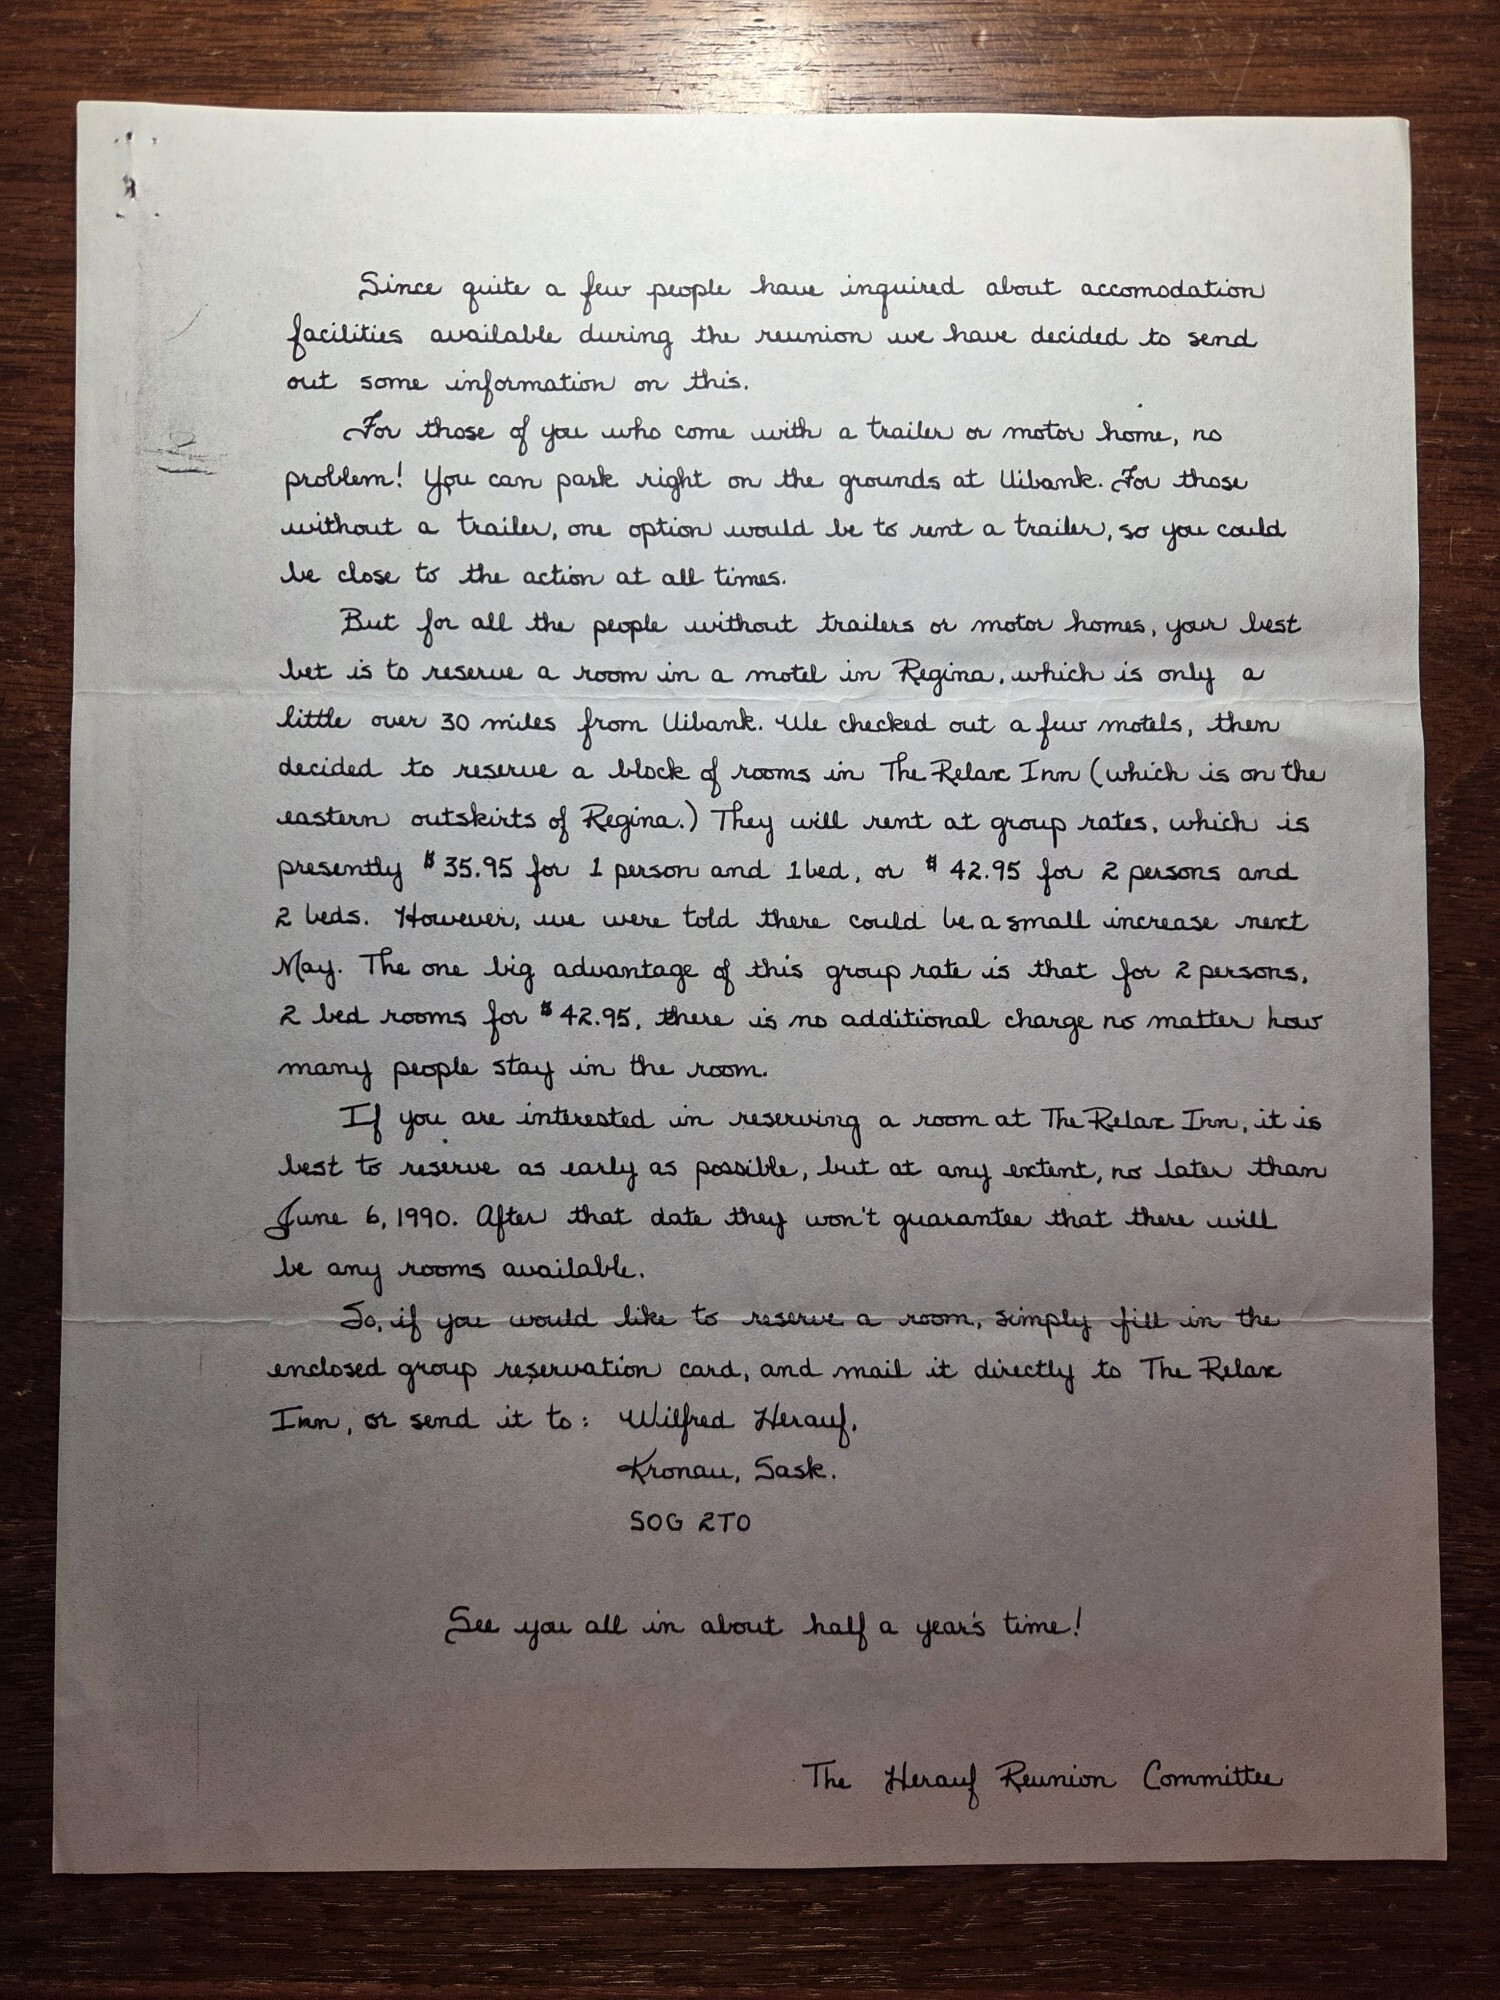 Since quite a few people have inquired about accomodation
facilities available during the reunion we have decided to send
out some information on this.
For those of you who come with a trailer or motor home, no
problem! You can park right on the grounds at Vibank. For those
without a trailer, one option would be to rent a trailer, so you could
be close to the action at all times.
But for all the people without trailers or motor homes, your best
bet is to reserve a room in a motel in Regina, which is only a
little over 30 miles from Vibank. We checked out a few motels, then
decided to reserve a block of rooms in The Relax Inn (which is on the
eastern outskirts of Regina.) They will rent at group rates, which is
presently $35.95 for 1 person and 1 bed, or $42.95 for 2 persons and
2 beds. However, we were told there could be a small increase next
May. The one big advantage of this group rate is that for 2 persons,
2 bed rooms for $42.95, there is no additional charge no matter how
many people stay in the room.
If you are interested in reserving a room at The Relax Inn, it is
best to reserve as early as possible, but at any extent, no later than
June 6, 1990. After that date they won't guarantee that there will
be any rooms available.
So, if you would like to reserve a room, simply fill in the
enclosed group reservation card, and mail it directly to The Relax
Inn, or send it to: Wilfred Herauf,
Kronau, Sask.
S0G 2T0
See you all in about half a year's time!
The Herauf Reunion Committee